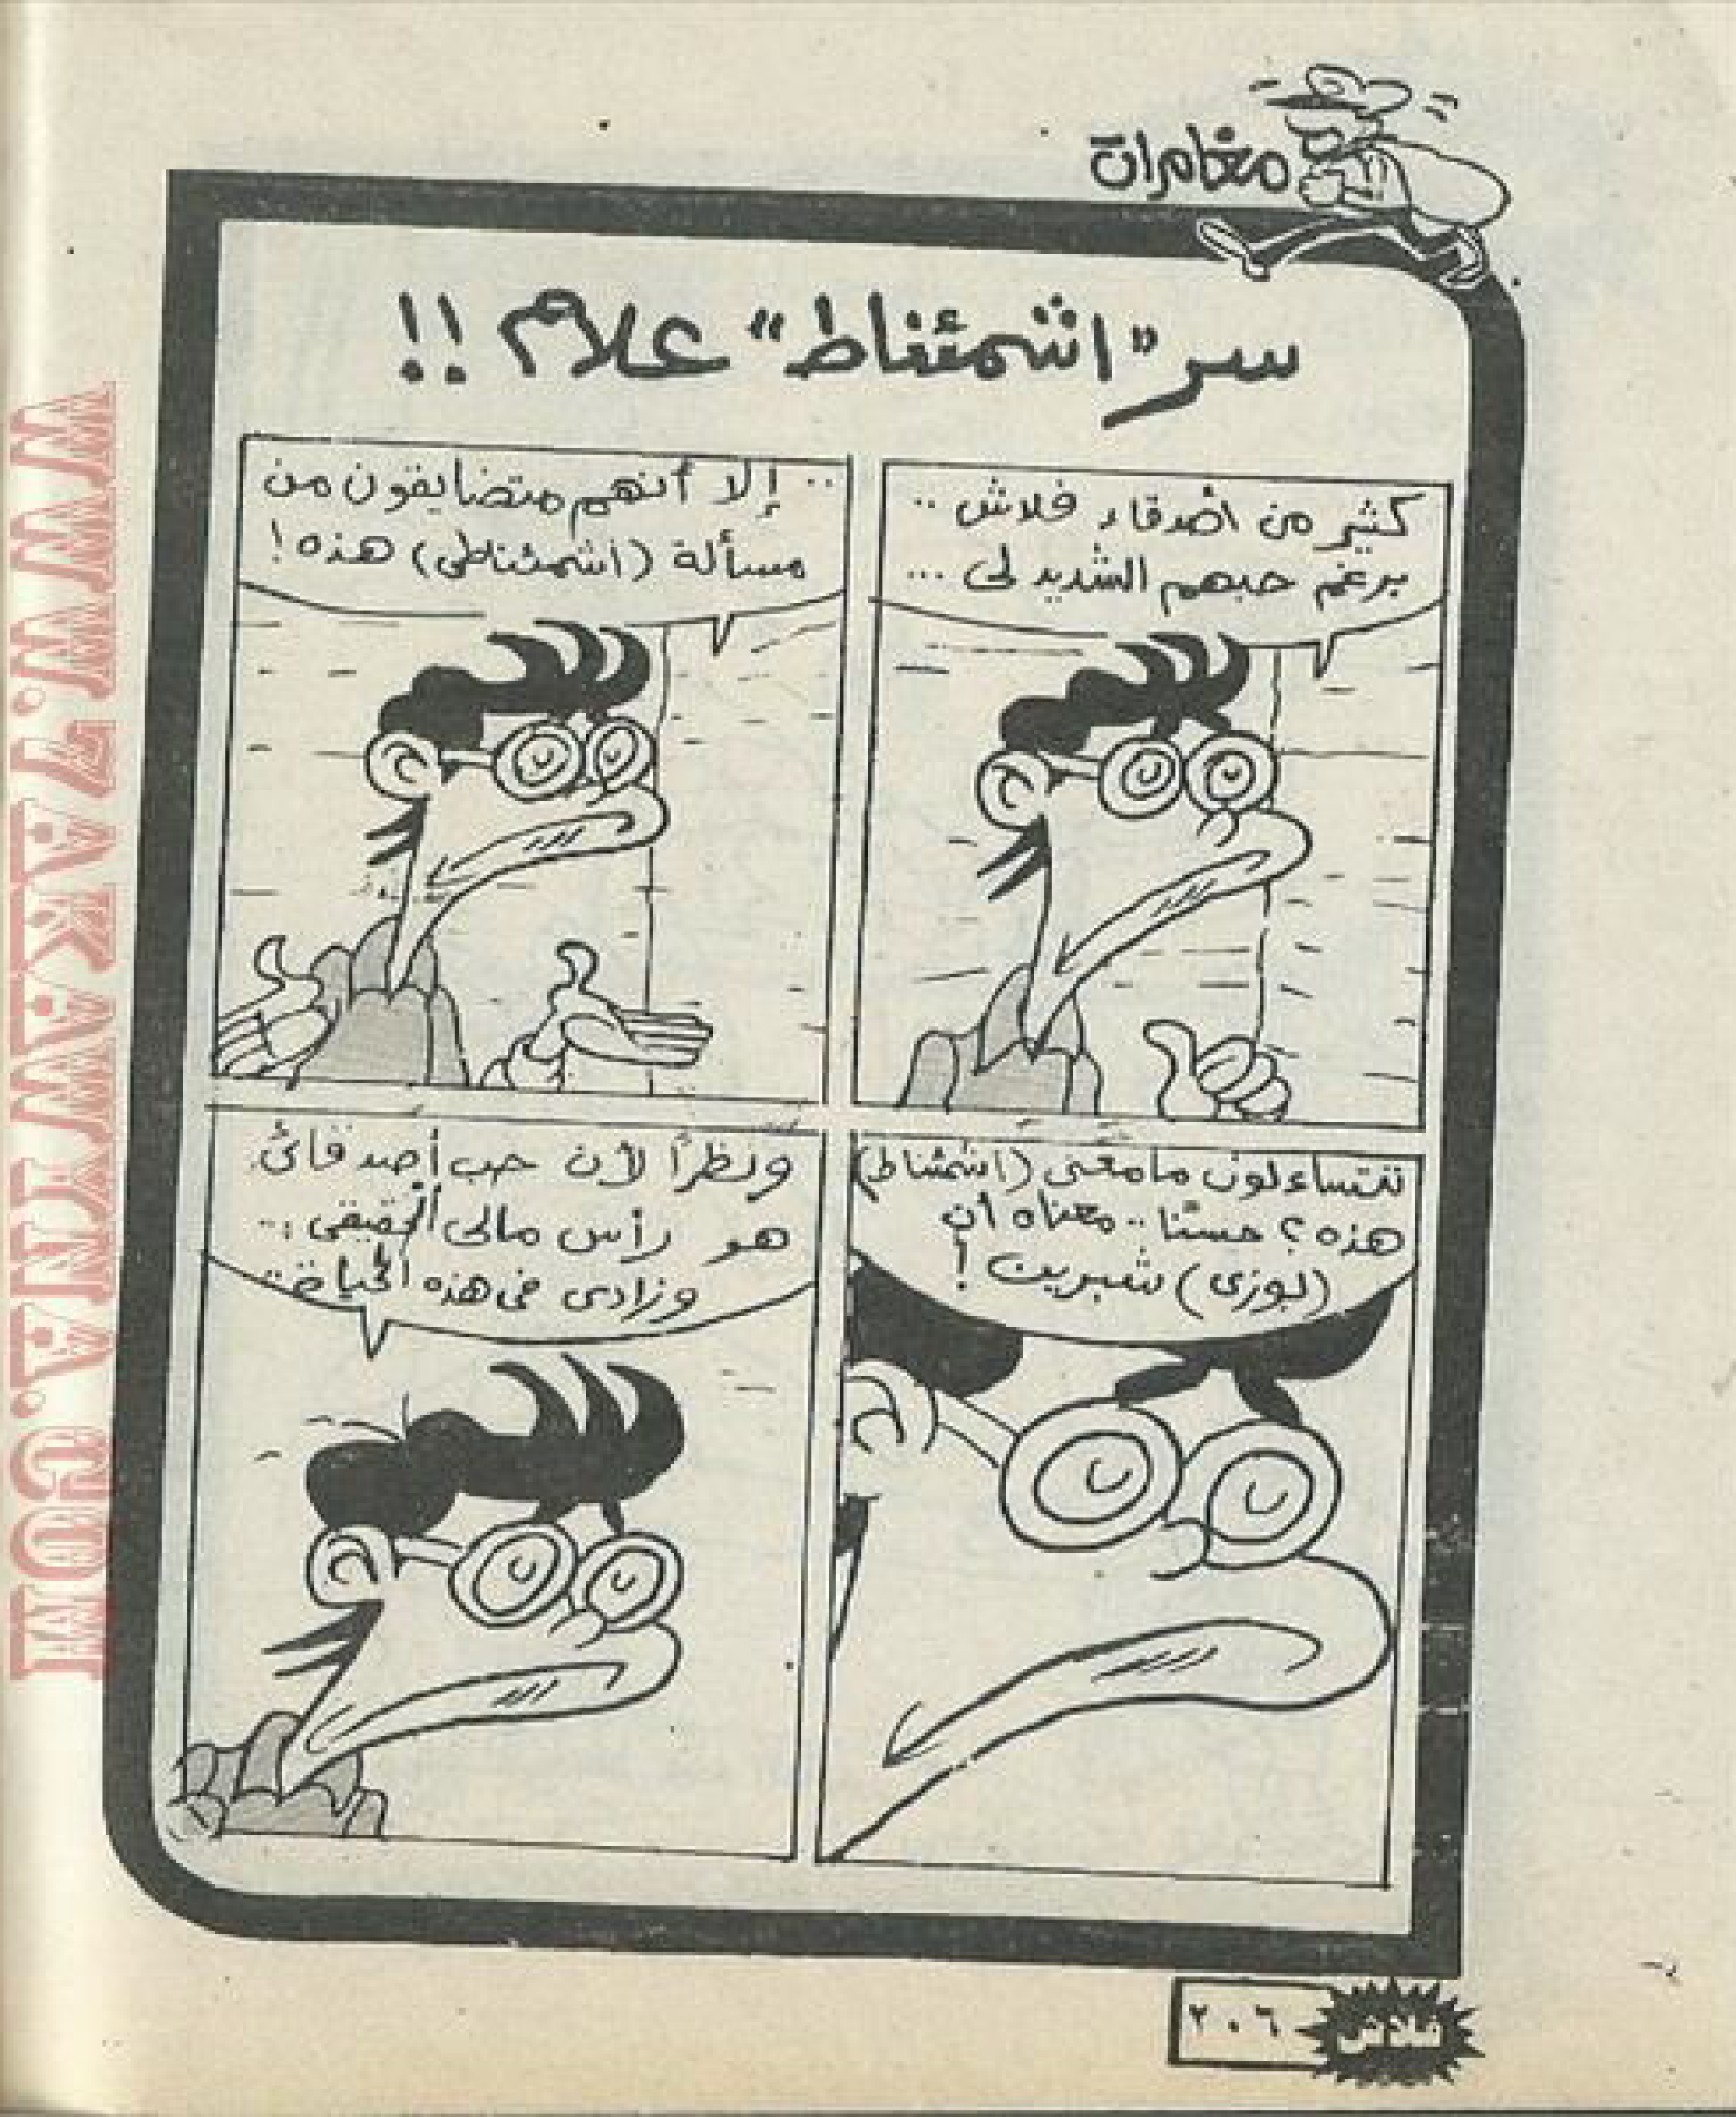 مغامرات
سر "اشمئناط" علام !!
كثير من أصدقاء فلاش ..
برغم حبهم الشديد لى ...
.. إلا أنهم متضايقون من
مسألة (اشمئناطى) هذه !
تتساءلون ما معنى (اشمئناط)
هذه ؟ حسنًا .. معناه أن
(لبوزى) شبرين !
ونظرًا لأن حب أصدقائى
هو رأس مالى الحقيقى ..
وزادى فى هذه الحياة ..
فلاش
٢٠٦